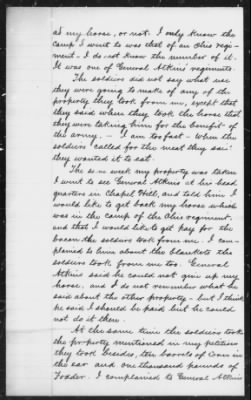 as my horse, or not. I only know the
camp I went to was that of an Ohio regi-
ment - I do not know the number of it.
It was one of General Atkins' regiments.
The soldiers did not say what use
they were going to make of any of the
property they took from me, except that
they said when they took the horse that
they were taking him for the benefit of
the army. - I am too fast - When the
soldiers called for the meat they said
they wanted it to eat.
The same week my property was taken
I went to see General Atkins at his head
quarters in Chapel Hill, and told him I
would like to get back my horse which
was in the camp of the Ohio regiment,
and that I would like to get pay for the
bacon the soldiers took from me. I com-
plained to him about the blankets the
soldiers took from me too. General
Atkins said he could not give up my
horse, and I do not remember what he
said about the other property - but I think
he said I should be paid but he could
not do it then.
At the same time the soldiers took
the property mentioned in my petition
they took besides, ten barrels of corn in
the ear and one thousand pounds of
Fodder. I complained to General Atkins